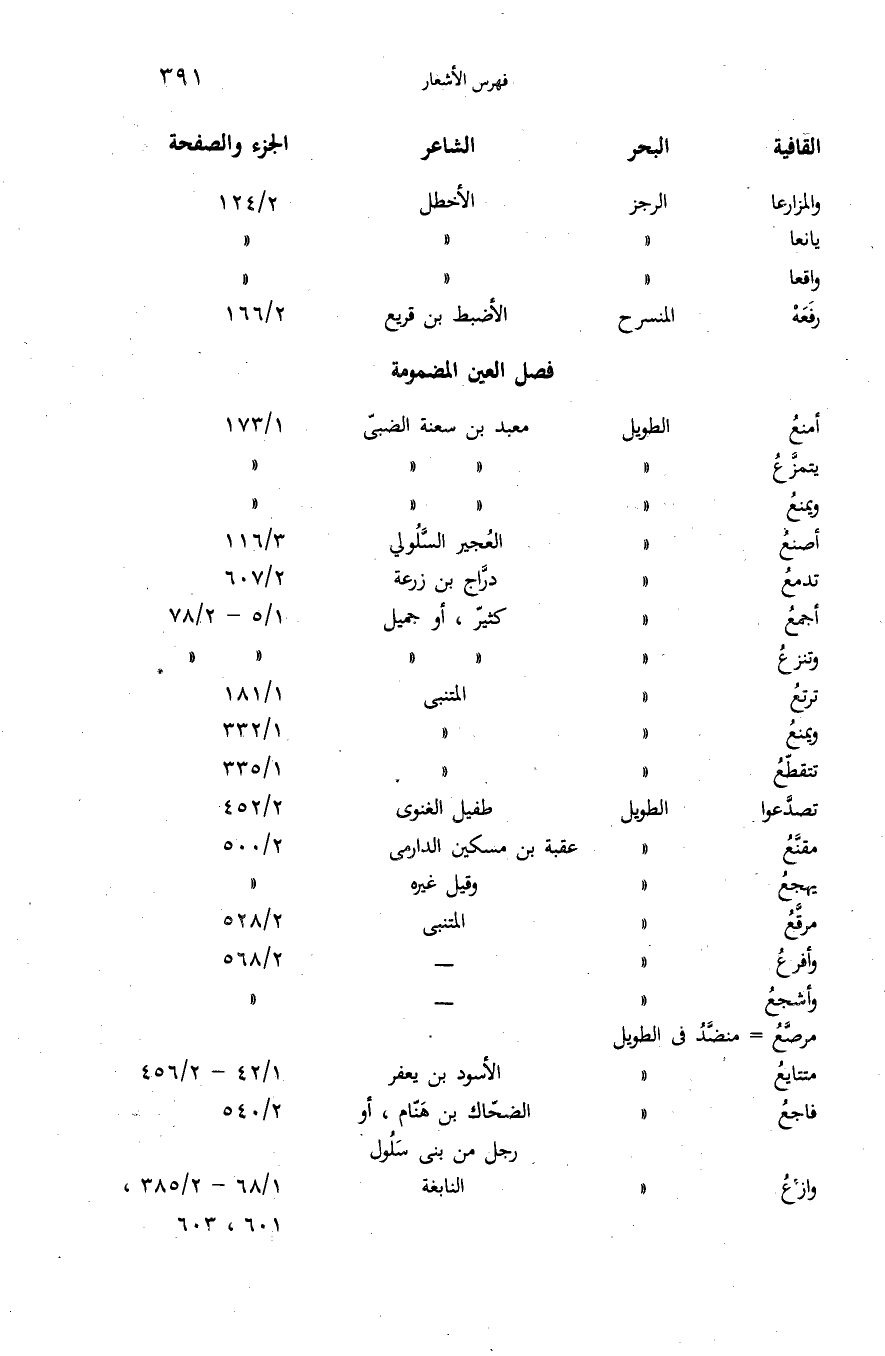 فهرس الأشعار ٣٩١
القافية البحر الشاعر الجزء والصفحة
والمزارعا الرجز الأخطل ١٢٤/٢
يانعا » » »
واقعا » » »
رفَعَهْ المنسرح الأضبط بن قريع ١٦٦/٢
فصل العين المضمومة
أمنعُ الطويل معبد بن سعنة الضبىّ ١٧٣/١
يتمزَّعُ » » » »
ويمنعُ » » » »
أصنعُ » العُجير السَّلُولي ١١٦/٣
تدمعُ » درَّاج بن زرعة ٦٠٧/٢
أجمعُ » كثيرّ ، أو جميل ٥/١ – ٧٨/٢
وتنزعُ » » » » »
ترتعُ » المتنبى ١٨١/١
ويمنعُ » » ٣٣٢/١
تتقطّعُ » » ٣٣٥/١
تصدَّعوا الطويل طفيل الغنوى ٤٥٢/٢
مقنَّعُ » عقبة بن مسكين الدارمى ٥٠٠/٢
يهجعُ » وقيل غيره »
مرقَّعُ » المتنبى ٥٢٨/٢
وأفرعُ » — ٥٦٨/٢
وأشجعُ » — »
مرصَّعُ = منضَّدُ فى الطويل
متتايعُ » الأسود بن يعفر ٤٢/١ – ٤٥٦/٢
فاجعُ » الضحّاك بن هَنّام ، أو ٥٤٠/٢
رجل من بنى سَلُول
وازعُ » النابغة ٦٨/١ – ٣٨٥/٢ ،
٦٠١ ، ٦٠٣